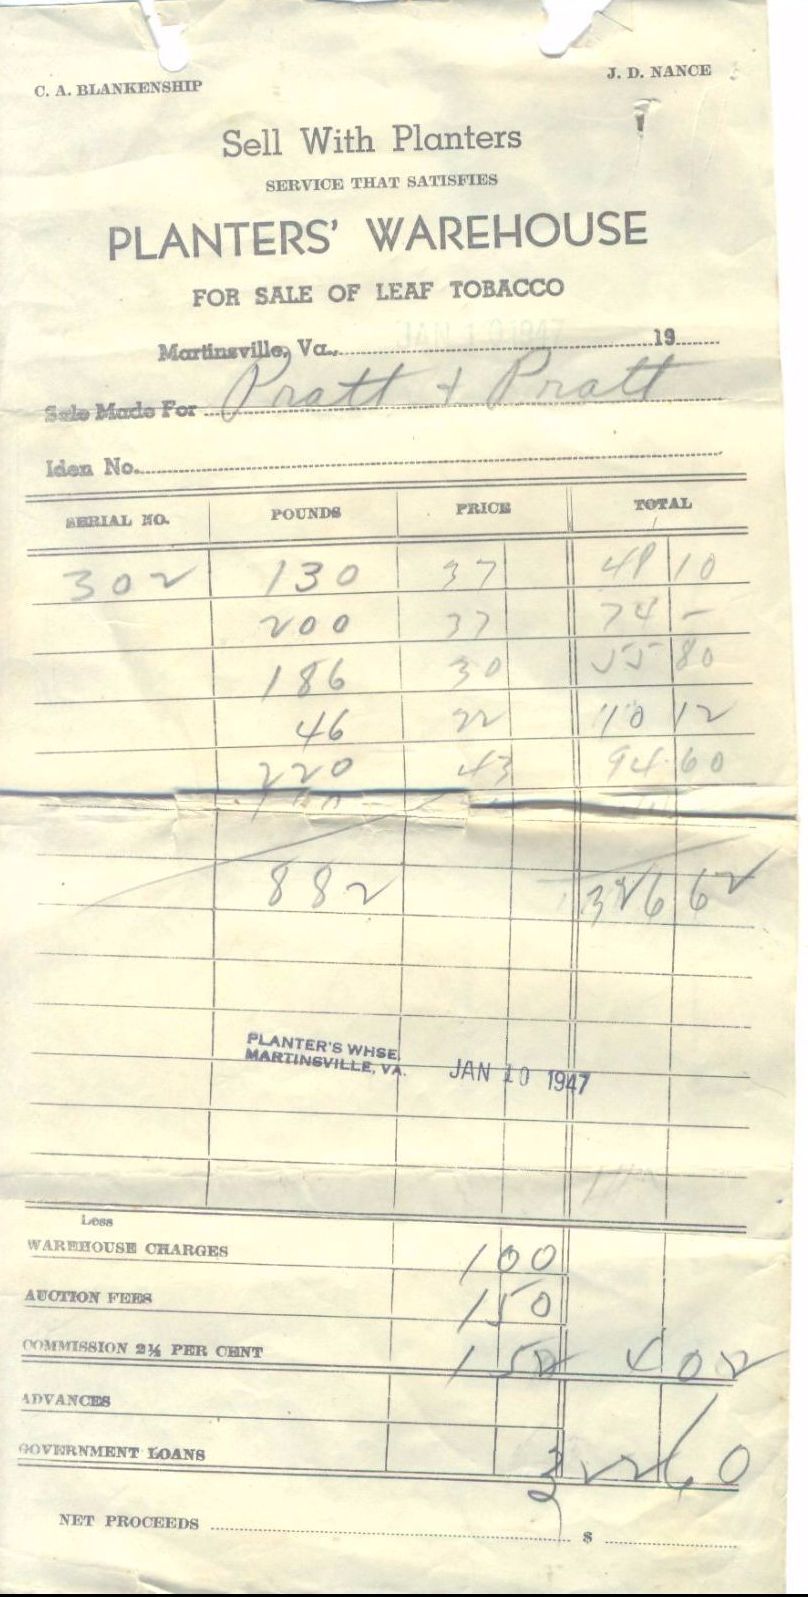 C. A. BLANKENSHIP J. D. NANCE
Sell With Planters
SERVICE THAT SATISFIES
PLANTERS' WAREHOUSE
FOR SALE OF LEAF TOBACCO
Martinsville, Va. 19
Sale Made For Pratt + Pratt
Iden No.
SERIAL NO. POUNDS PRICE TOTAL
302 130 37 48 10
200 37 74 -
186 30 55 80
46 22 10 12
220 43 94 60
882 326 62
PLANTER'S WHSE.
MARTINSVILLE, VA. JAN 10 1947
Less
WAREHOUSE CHARGES 1 00
AUCTION FEES 1 50
COMMISSION 2½ PER CENT 1 52 4 02
ADVANCES
GOVERNMENT LOANS 322 60
NET PROCEEDS $